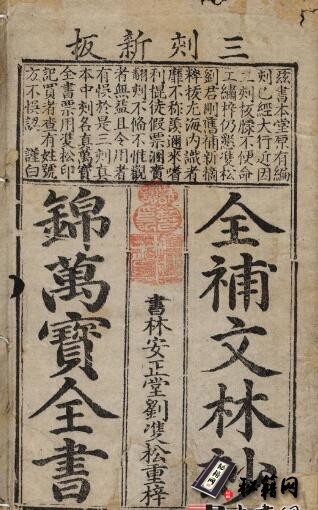 三刻新板
茲書本堂原有編
刻已經大行近因
二刻板朦不便命
工繡梓仍懇雙松
劉君剛舊補新摘
粹拔尤海內識者
靡不称羨邇來嗜
利棍徒假票溷賣
翻刻不備不惟觀
者無益且令用者
有悞於是三刻真
本中刻名真萬寶
全書票用雙松印
記買者查有姓號
方不悞認 謹白
全補文林
書林安正堂劉雙松重梓
錦萬寶全書
秘籍网